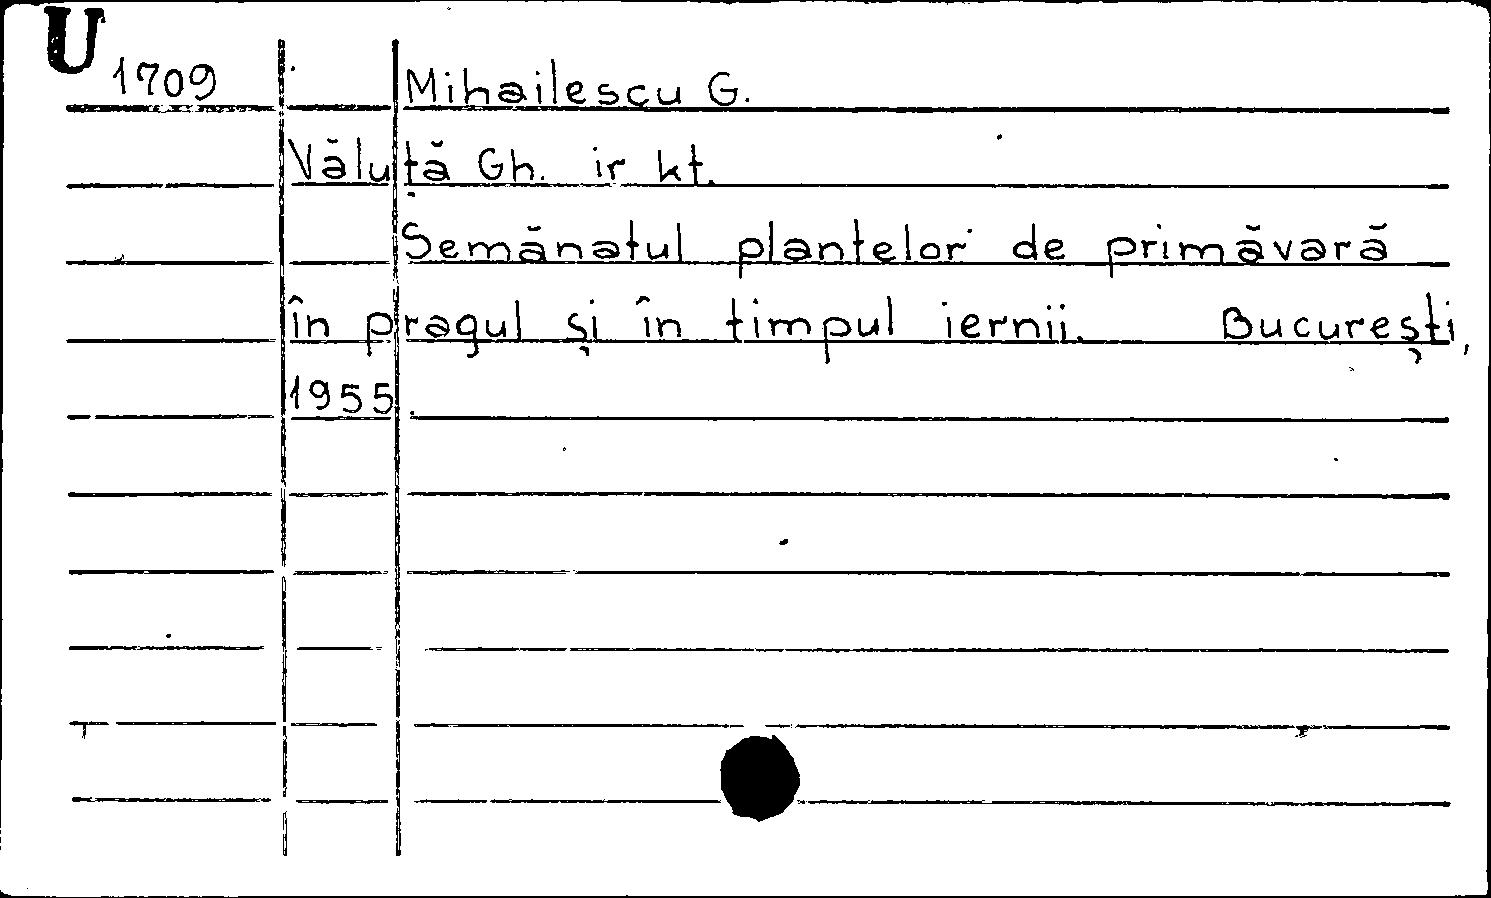 U
1709 Mihailescu G.
Văluță Gh. ir kt.
Semănatul plantelor de primăvară
în pragul și în timpul iernii. București,
1955.